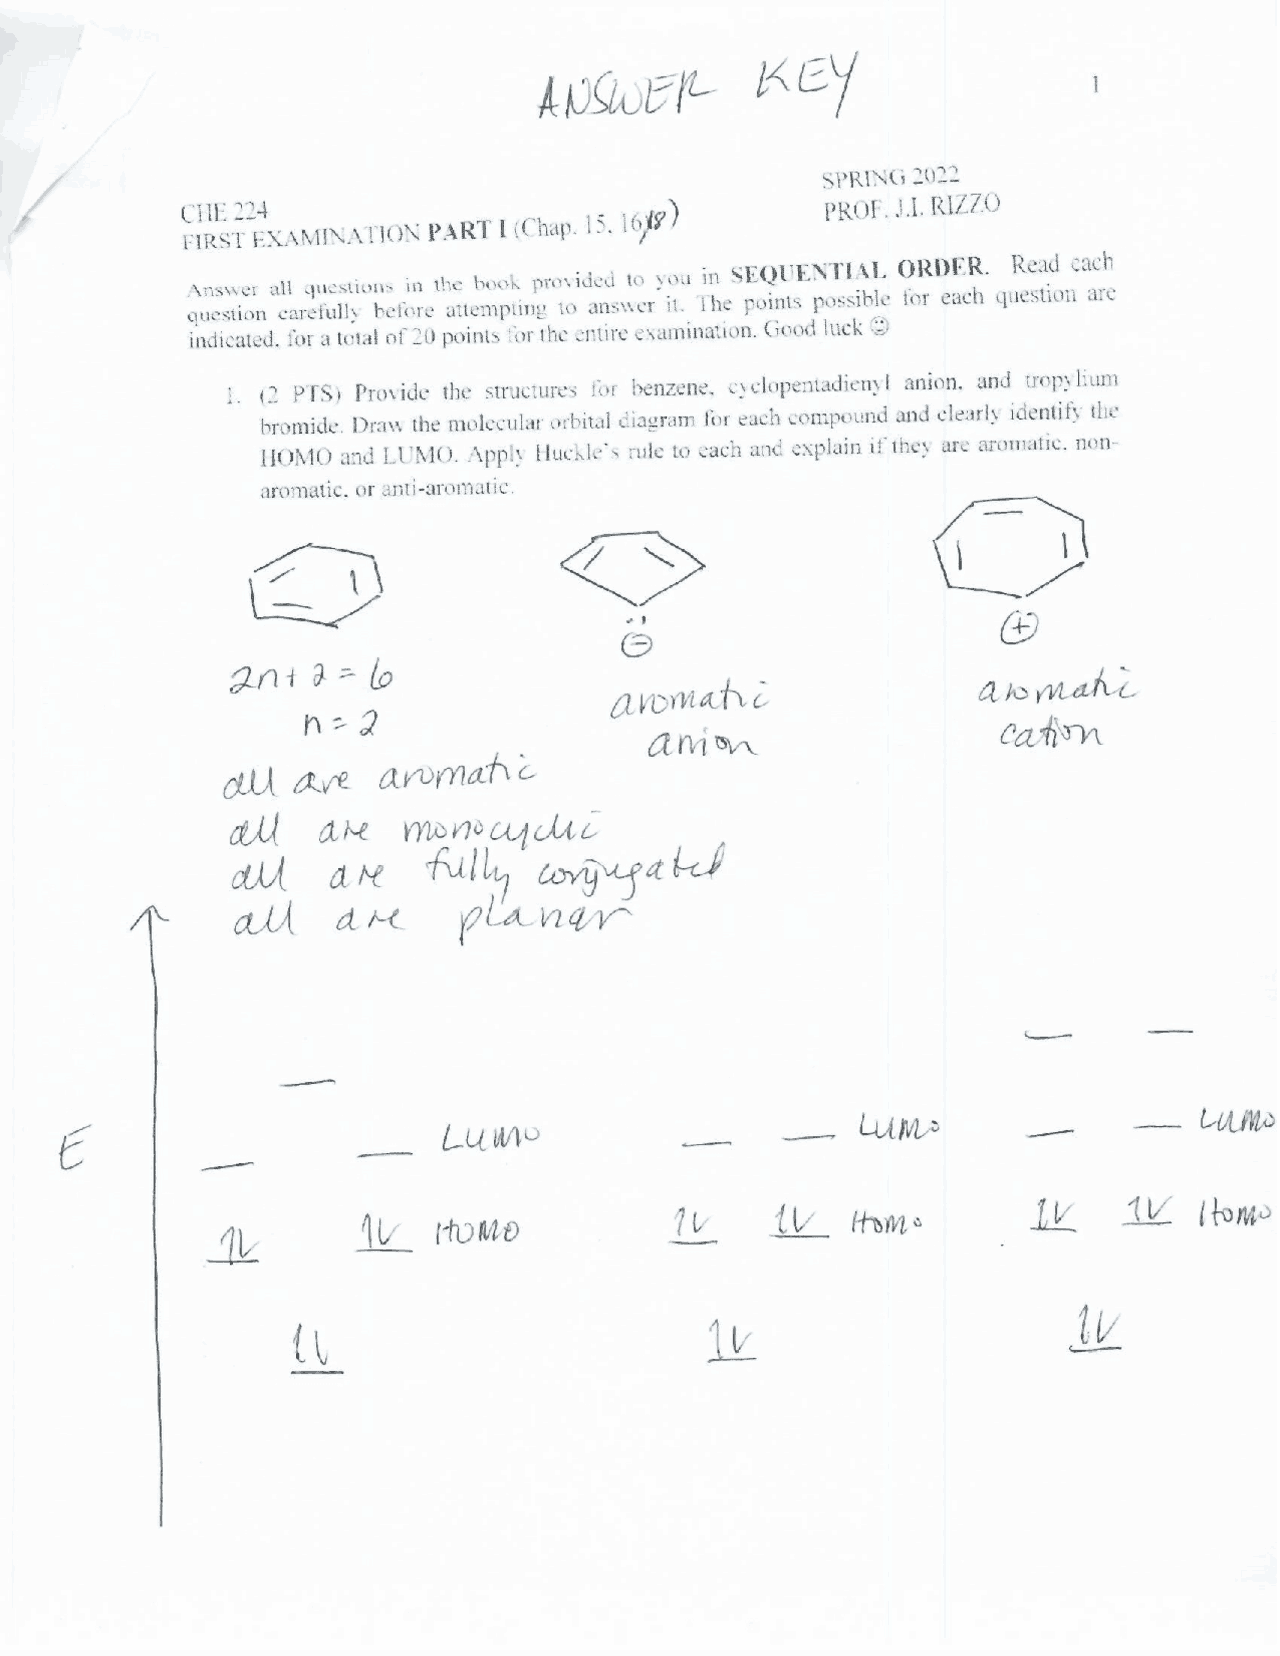 ANSWER KEY
1
SPRING 2022
CHE 224
PROF. J.I. RIZZO
FIRST EXAMINATION PART I (Chap. 15, 16/18)
Answer all questions in the book provided to you in SEQUENTIAL ORDER. Read each
question carefully before attempting to answer it. The points possible for each question are
indicated, for a total of 20 points for the entire examination. Good luck ☺
1. (2 PTS) Provide the structures for benzene, cyclopentadienyl anion, and tropylium
bromide. Draw the molecular orbital diagram for each compound and clearly identify the
HOMO and LUMO. Apply Huckle's rule to each and explain if they are aromatic, non-
aromatic, or anti-aromatic.
⊖ ⊕
2n+2 = 6
n = 2
aromatic
anion
aromatic
cation
all are aromatic
all are monocyclic
all are fully conjugated
all are planar
E
LUMO LUMO LUMO
HOMO HOMO HOMO